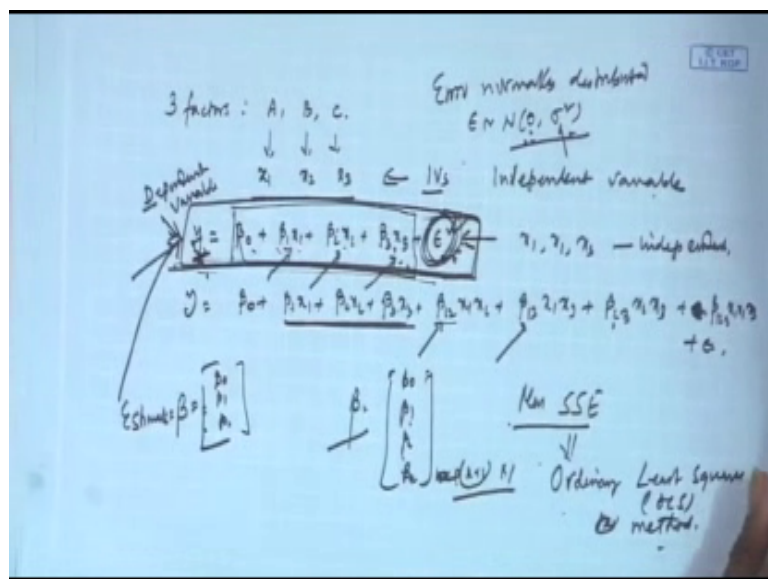 © CET
I.I.T. KGP
Error normally distributed
ϵ ~ N(0, σ²)
3 factors : A, B, C.
↓ ↓ ↓
x₁ x₂ x₃ ← IVs Independent variable
Dependent variable
y = β₀ + β₁x₁ + β₂x₂ + β₃x₃ + ϵ ← x₁, x₂, x₃ — independent.
y = β₀ + β₁x₁ + β₂x₂ + β₃x₃ + β₁₂x₁x₂ + β₁₃x₁x₃ + β₂₃x₂x₃ + β₁₂₃x₁x₂x₃
+ ϵ.
Estimate β = [β₀ β₁ β₂]
β = [β₀ β₁ β₂ βₖ] (k+1) x 1
Min SSE
⇓
Ordinary Least Square
(OLS)
method.